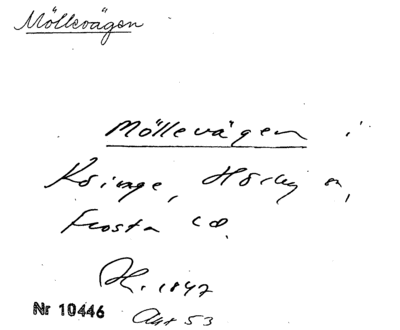 Möllevägen
Möllevägen i
Köinge, Hörby sn,
Frosta hd.
H. 1847
Nr 10446
Akt 53